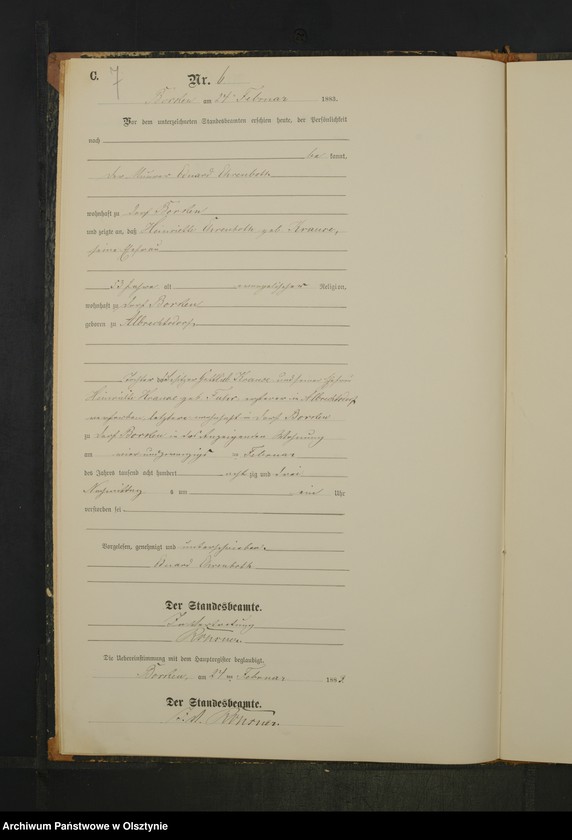 C.
7
Nr. 6
Borken am 24 Februar 1883.
Vor dem unterzeichneten Standesbeamten erschien heute, der Persönlichkeit
nach
be kannt,
der Maurer Eduard Ehrenboth
wohnhaft zu Dorf Borken
und zeigte an, daß Henriette Ehrenboth geb. Krause,
seine Ehefrau
53 Jahre alt evangelischer Religion,
wohnhaft zu Dorf Borken
geboren zu Albrechtsdorf
Tochter Besitzer Gottlieb Krause und seiner Ehefrau
Heinriette Krause geb. in Albrechtsdorf
verstorben, letztere wohnhaft in Dorf Borken
zu Dorf Borken in des Anzeigenden Wohnung
am vier und zwanzigst en Februar
des Jahres tausend acht hundert acht zig und drei
Nachmittag s um ein Uhr
verstorben sei
Vorgelesen, genehmigt und unterschrieben.
Eduard Ehrenboth
Der Standesbeamte.
In Vertretung
Die Uebereinstimmung mit dem Hauptregister beglaubigt,
Borken, am 24 ten Februar 1883.
Der Standesbeamte.
Archiwum Państwowe w Olsztynie